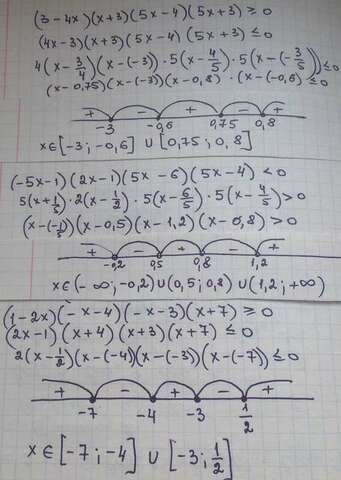 (3-4x)(x+3)(5x-4)(5x+3) ≥ 0
(4x-3)(x+3)(5x-4)(5x+3) ≤ 0
4(x-3/4)(x-(-3))·5(x-4/5)·5(x-(-3/5)) ≤ 0
(x-0,75)(x-(-3))(x-0,8)·(x-(-0,6) ≤ 0
+ - + - +
-3 -0,6 0,75 0,8
x∈[-3;-0,6] ∪ [0,75; 0,8]
(-5x-1)(2x-1)(5x-6)(5x-4) < 0
5(x+1/5)·2(x-1/2)·5(x-6/5)·5(x-4/5) > 0
(x-(-1/5))(x-0,5)(x-1,2)(x-0,8) > 0
+ - + - +
-0,2 0,5 0,8 1,2
x∈(-∞;-0,2)∪(0,5; 0,8)∪(1,2; +∞)
(1-2x)(-x-4)(-x-3)(x+7) ≥ 0
(2x-1)(x+4)(x+3)(x+7) ≤ 0
2(x-1/2)(x-(-4))(x-(-3))(x-(-7)) ≤ 0
+ - + - +
-7 -4 -3 1/2
x∈[-7;-4] ∪ [-3; 1/2]